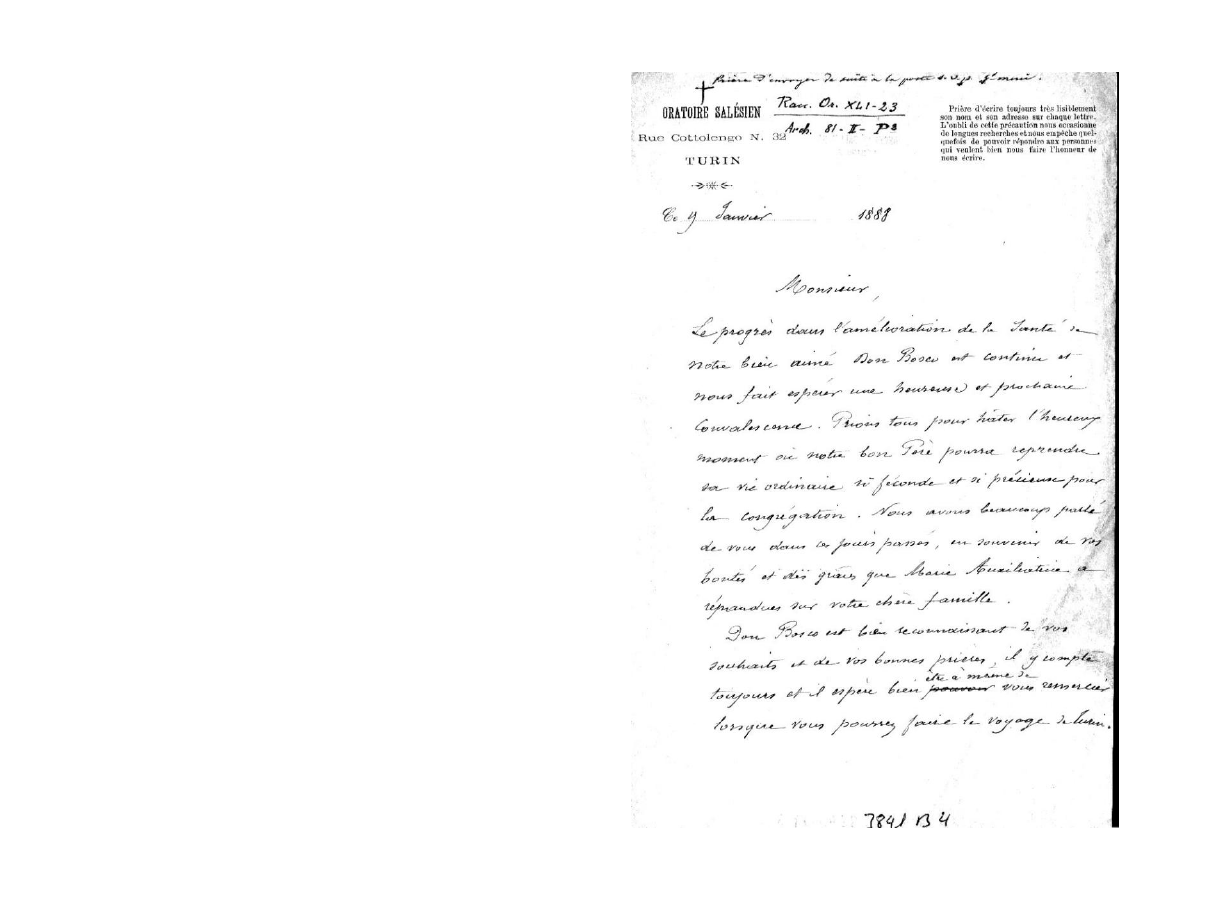 Prière d'envoyer de suite à la poste s. v. p. merci.
ORATOIRE SALÉSIEN
Rue Cottolengo N. 32
TURIN
Racc. Or. XLI-23
Arch. 81-II-
Prière d'écrire toujours très lisiblement
son nom et son adresse sur chaque lettre.
L'oubli de cette précaution nous occasionne
de longues recherches et nous empêche quel-
quefois de pouvoir répondre aux personnes
qui veulent bien nous faire l'honneur de
nous écrire.
Ce 9 Janvier 1888
Monsieur,
Le progrès dans l'amélioration de la Santé de
notre bien aimé Don Bosco est continu et
nous fait espérer une heureuse et prochaine
Convalescence. Prions tous pour hâter l'heureux
moment où notre bon Père pourra reprendre
sa vie ordinaire si féconde et si précieuse pour
la Congrégation. Nous avons beaucoup parlé
de vous dans ces jours passés, en souvenir de vos
bontés et des grâces que Marie Auxiliatrice a
répandues sur votre chère famille.
Don Bosco est bien reconnaissant de vos
souhaits et de vos bonnes prières, il y compte
toujours et il espère bien pouvoir être à même de vous remercier
lorsque vous pourrez faire le voyage de Turin.
3841 B 4